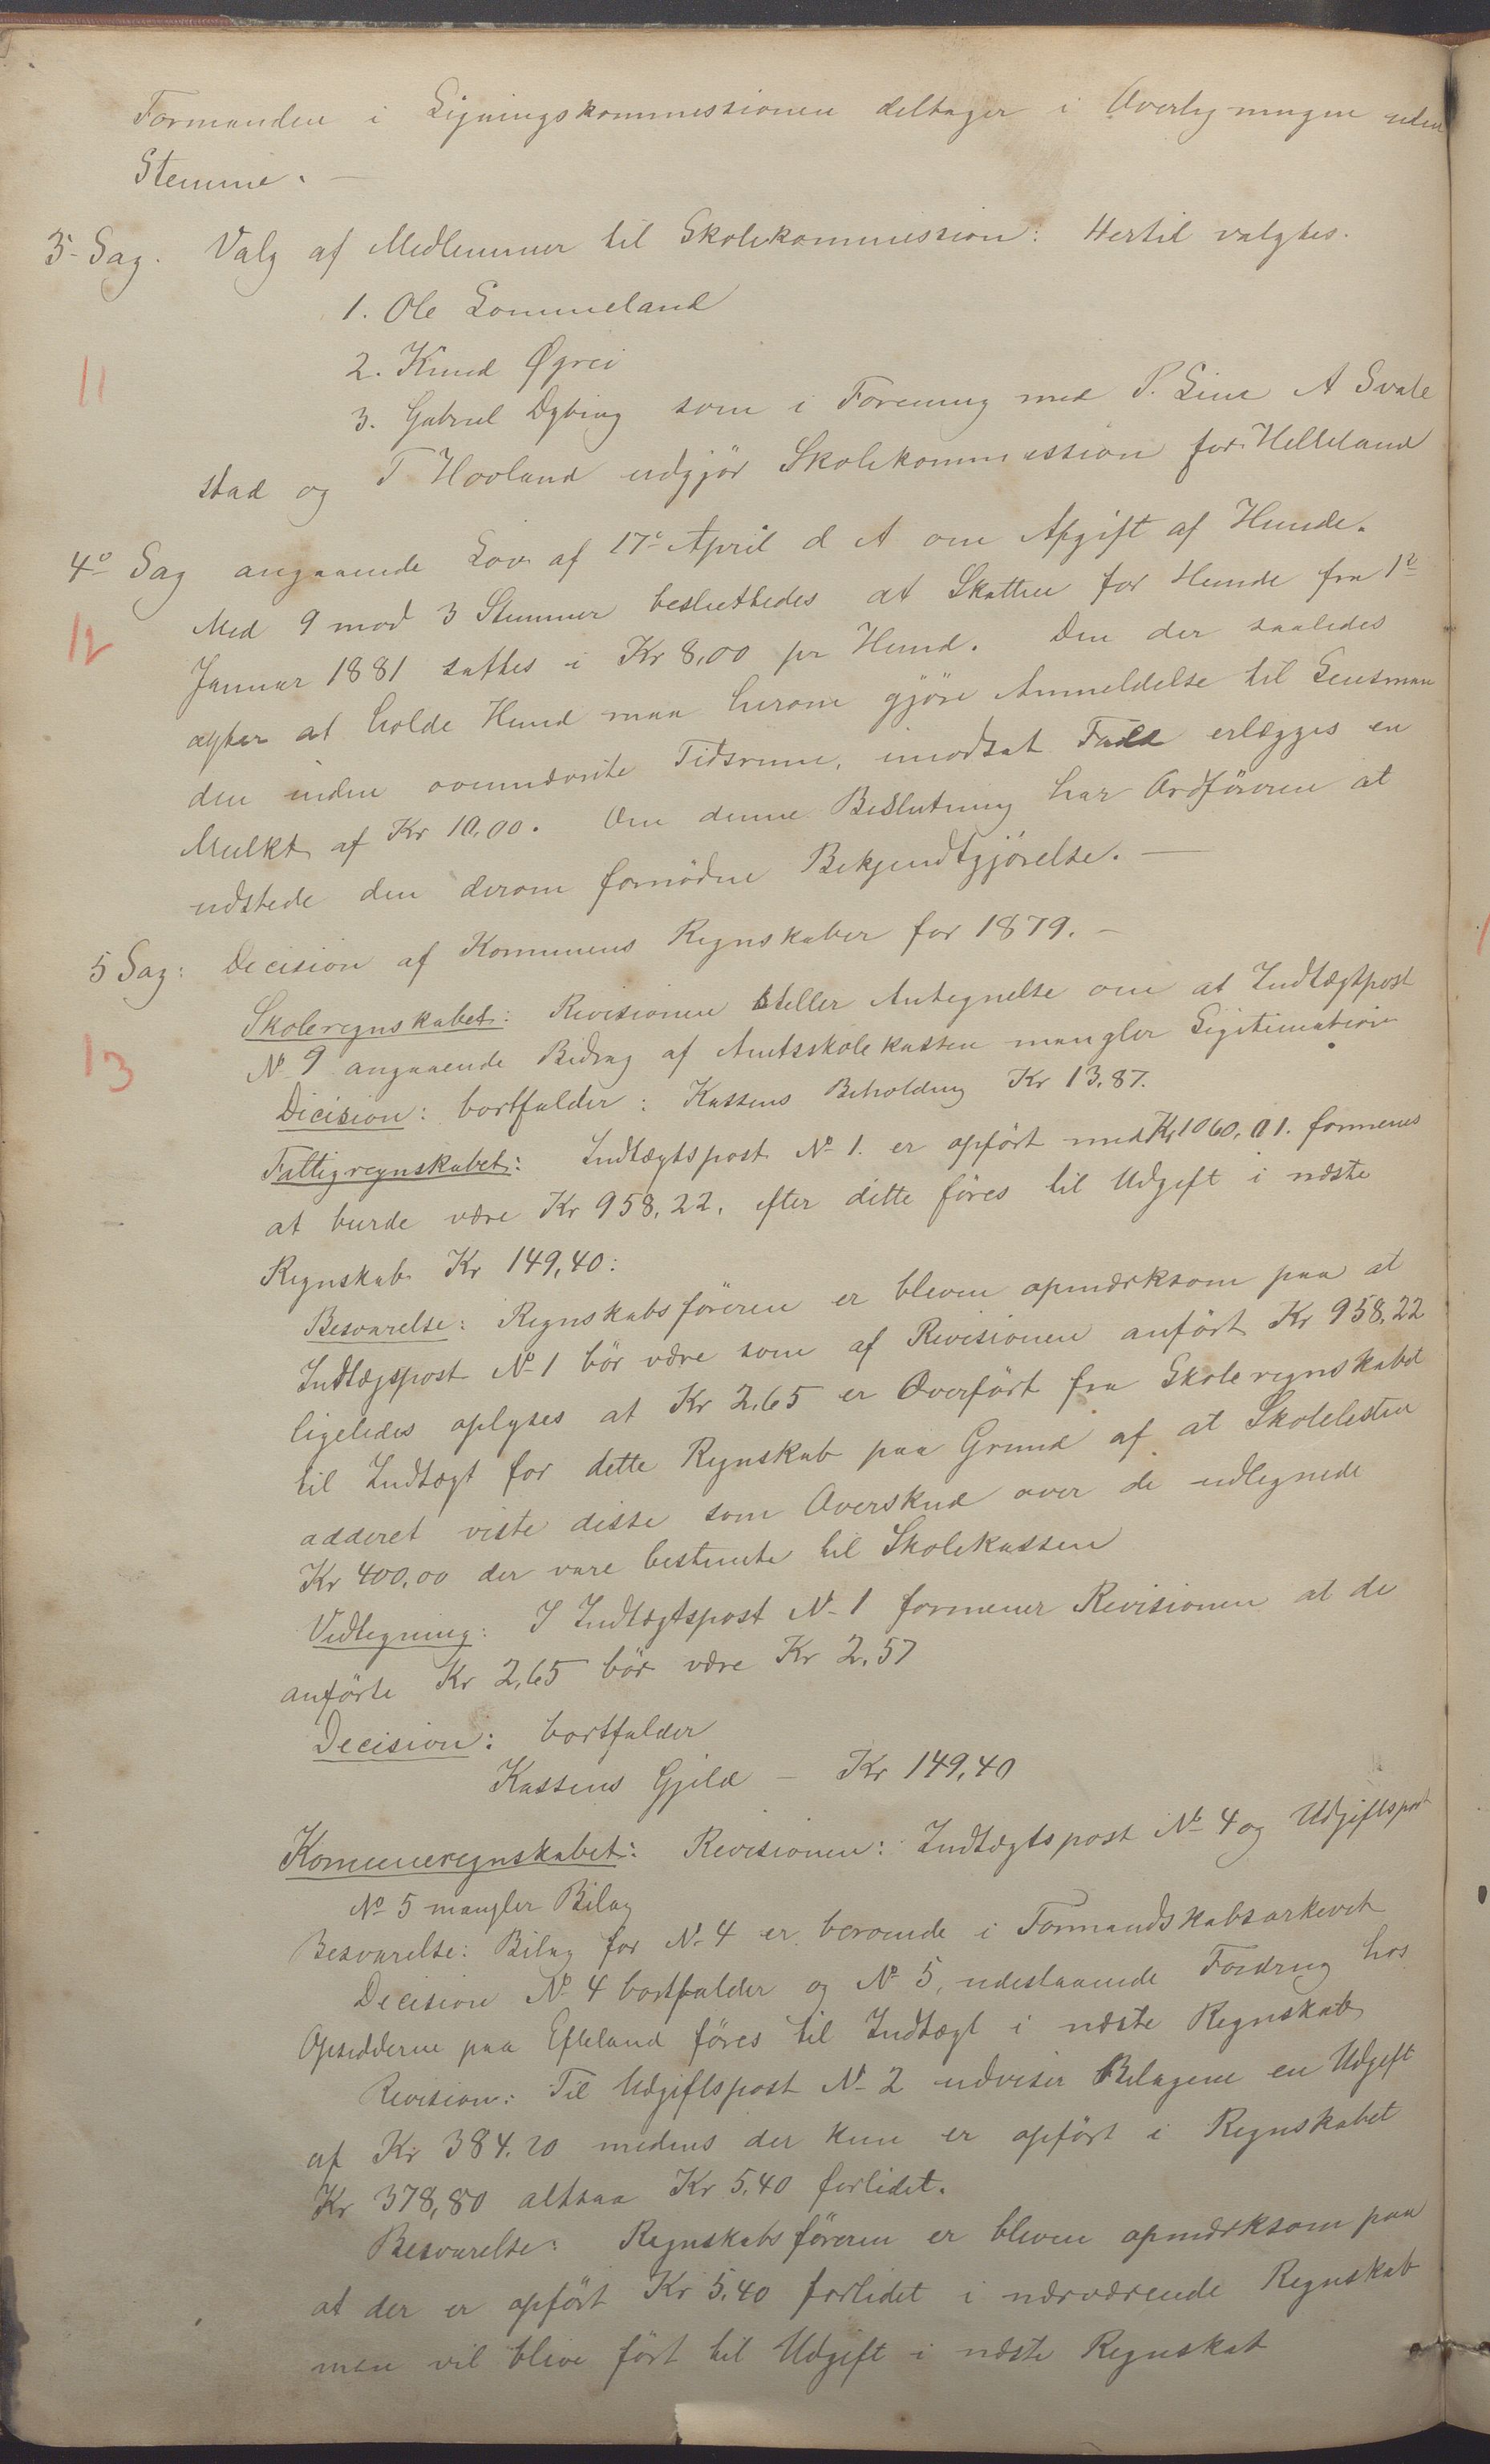 Formanden i Ligningskommissionen deltager i Overligningen uden
Stemme. —
3- Sag. Valg af Medlemmer til Skolekommission: Hertil valgtes.
1. Ole Lommeland
11
2. Knud Øgrei
3. Gabriel Dybing som i Forening med P. Line A Svale
stad og T Hovland udgjør Skolekommission for Helleland
4º Sag angaaende Lov af 17de April d A om Afgift af Hunde.
12
Med 9 mod 3 Stemmer besluttedes at Skatten for Hunde fra 1ste
Januar 1881 sattes i Kr 8,00 pr Hund. Den der saaledes
agter at holde Hund maa herom gjøre Anmeldelse til Lensman
den inden ovennævnte Tidsrum, imodsat Fald erlægges en
Mulkt af Kr 10,00. Om denne Beslutning har Ordføreren at
udstede den derom fornødne Bekjendtgjørelse. —
5 Sag: Decision af Kommunens Regnskaber for 1879. —
13
Skoleregnskabet: Revisionen steller Antegnelse om at Indtægtpost
No 9 angaaende Bidrag af Amtsskolekassen mangler Legitimation
Dicision: bortfalder: Kassens Beholdning Kr 13,87.
Fattigregnskabet: Indtægtspost No 1. er opført med Kr 1060,01. formenes
at burde være Kr 958,22, efter dette føres til Udgift i næste
Regnskab Kr 149,40:
Besvarelse: Regnskabsføreren er bleven opmærksom paa at
Indtægspost No 1 bør være som af Revisionen anført Kr 958,22
ligeledes oplyses at Kr 2,65 er Overført fra Skoleregnskabet
til Indtægt for dette Regnskab paa Grund af at Skolelisten
adderet viste disse som Overskud over de udlignede
Kr 400,00 der vare bestemte til Skolekassen
Vedtegning: I Indtægtspost No 1 formener Revisionen at de
anførte Kr 2,65 bør være Kr 2,57
Decision: bortfalder
Kassens Gjeld — Kr 149,40
Komuneregnskabet: Revisionen: Indtægtspost No 4 og Udgiftspost
No 5 mangler Bilag
Besvarelse: Bilag for No 4 er beroende i Formandskabsarkevet
Decision No 4 bortfalder og No 5, udestaaende Fordring hos
Opsidderne paa Efteland føres til Indtægt i næste Regnskab
Revision: Til Udgiftspost No 2 udviser Bilagene en Udgift
af Kr 384,20 medens der kun er opført i Regnskabet
Kr 378,80 altsaa Kr 5,40 forlidet.
Besvarelse: Regnskabsføreren er bleven opmærksom paa
at der er opført Kr 5,40 forlidet i nærværende Regnskab
men vil blive ført til Udgift i næste Regnskab